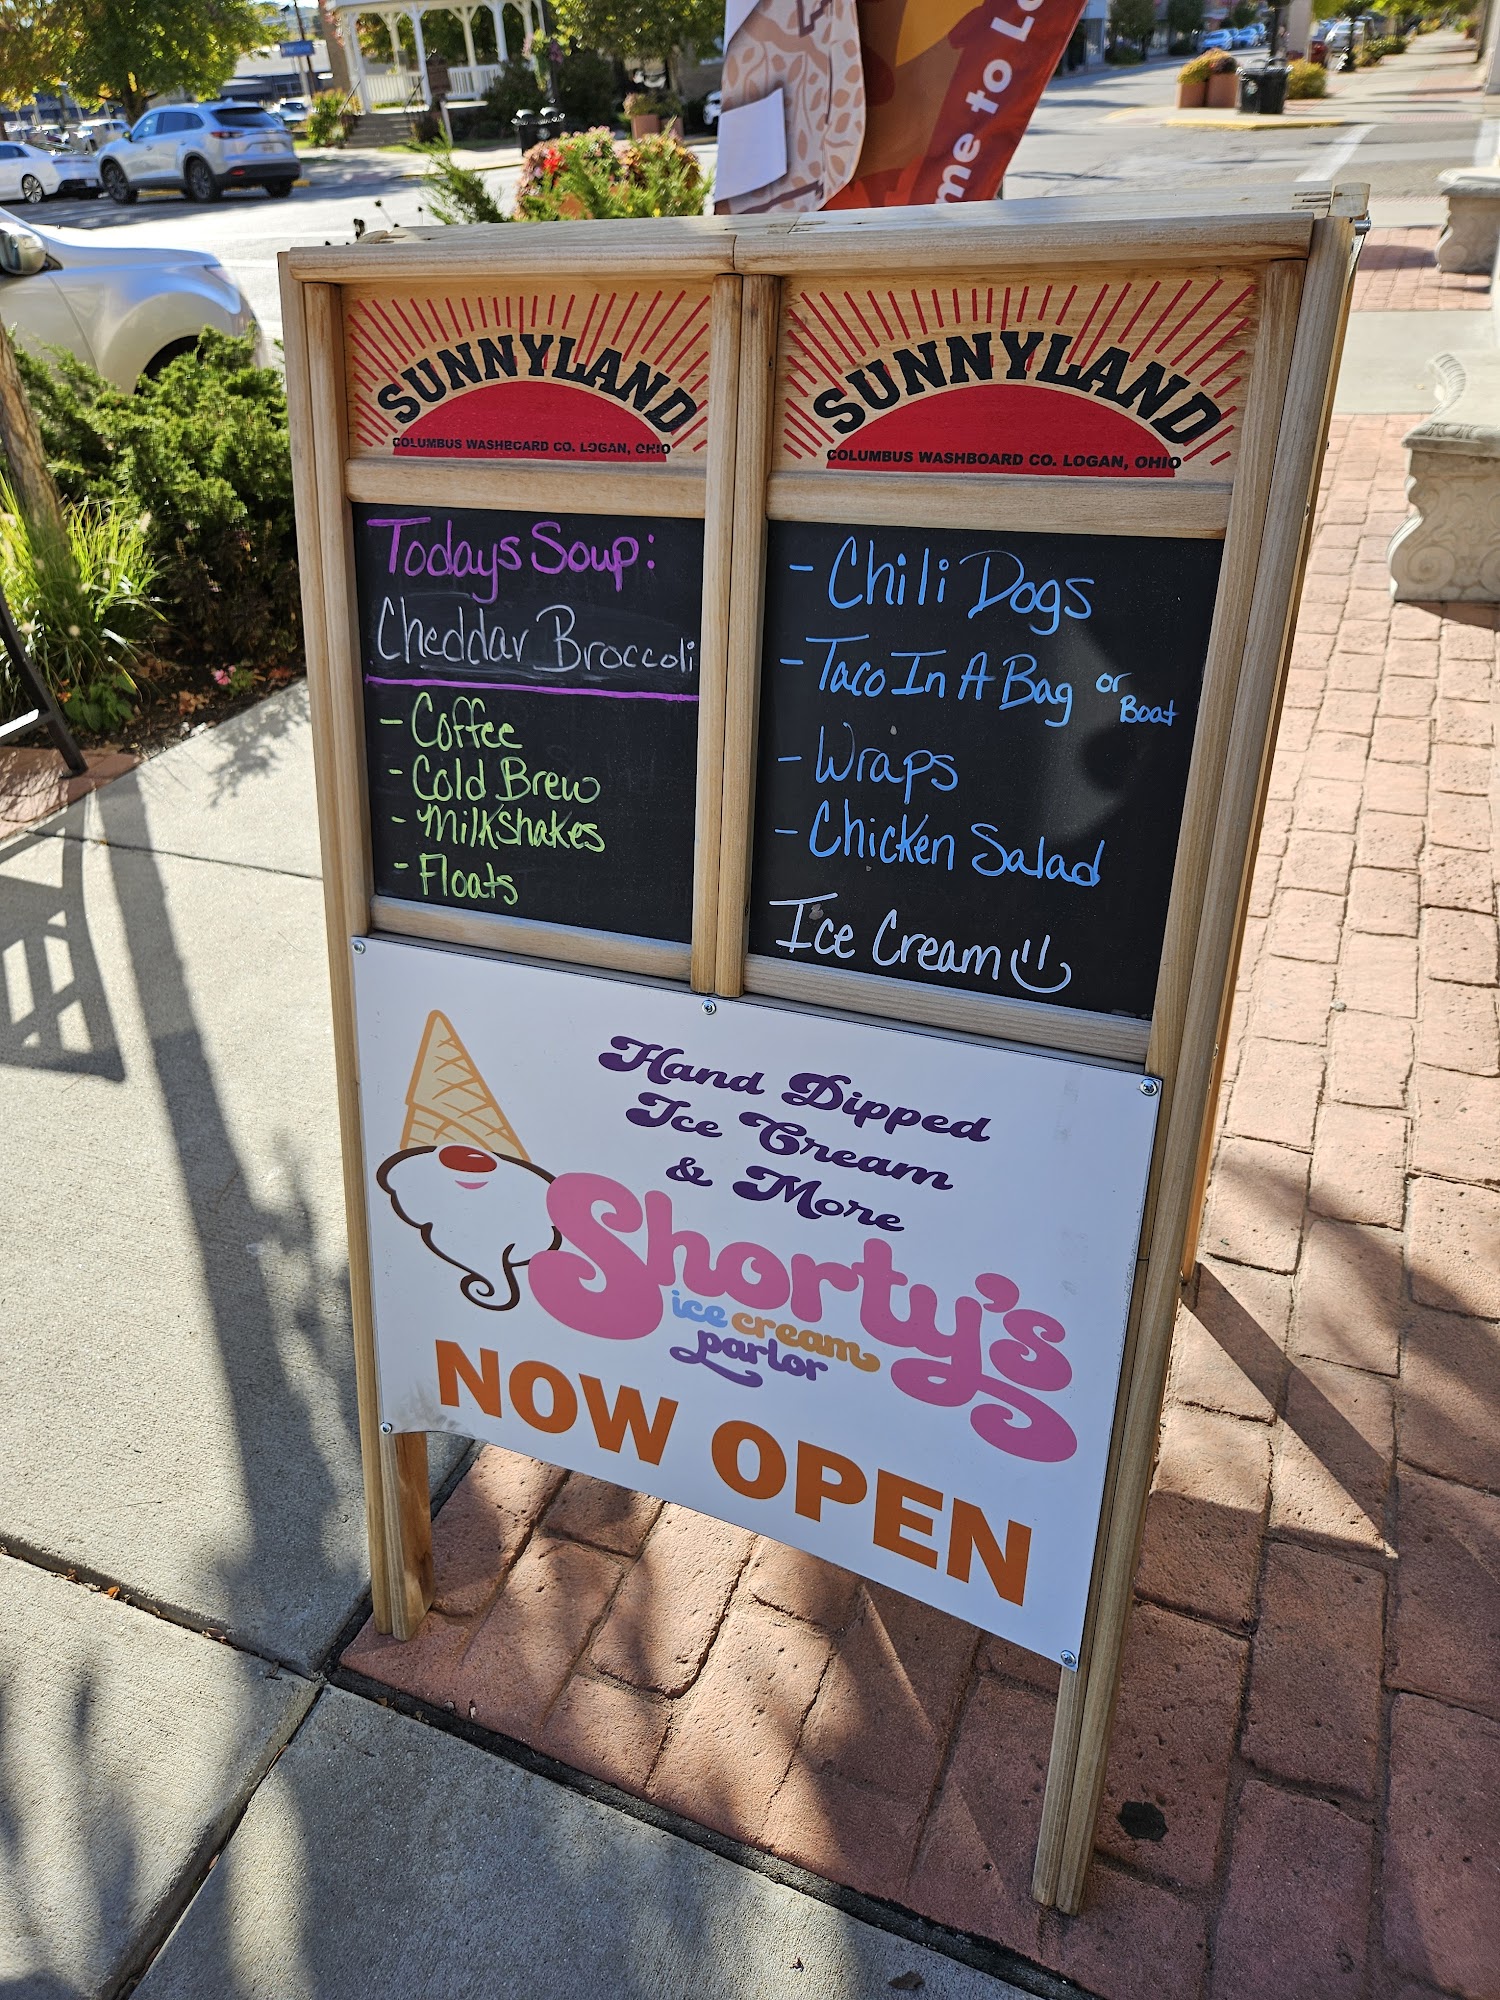 me to Lo
SUNNYLAND
COLUMBUS WASHBOARD CO. LOGAN, OHIO
Todays Soup:
Cheddar Broccoli
- Coffee
- Cold Brew
- Milkshakes
- Floats
SUNNYLAND
COLUMBUS WASHBOARD CO. LOGAN, OHIO
- Chili Dogs
- Taco In A Bag or Boat
- Wraps
- Chicken Salad
Ice Cream
Hand Dipped
Ice Cream
& More
Shorty's
ice cream
parlor
NOW OPEN